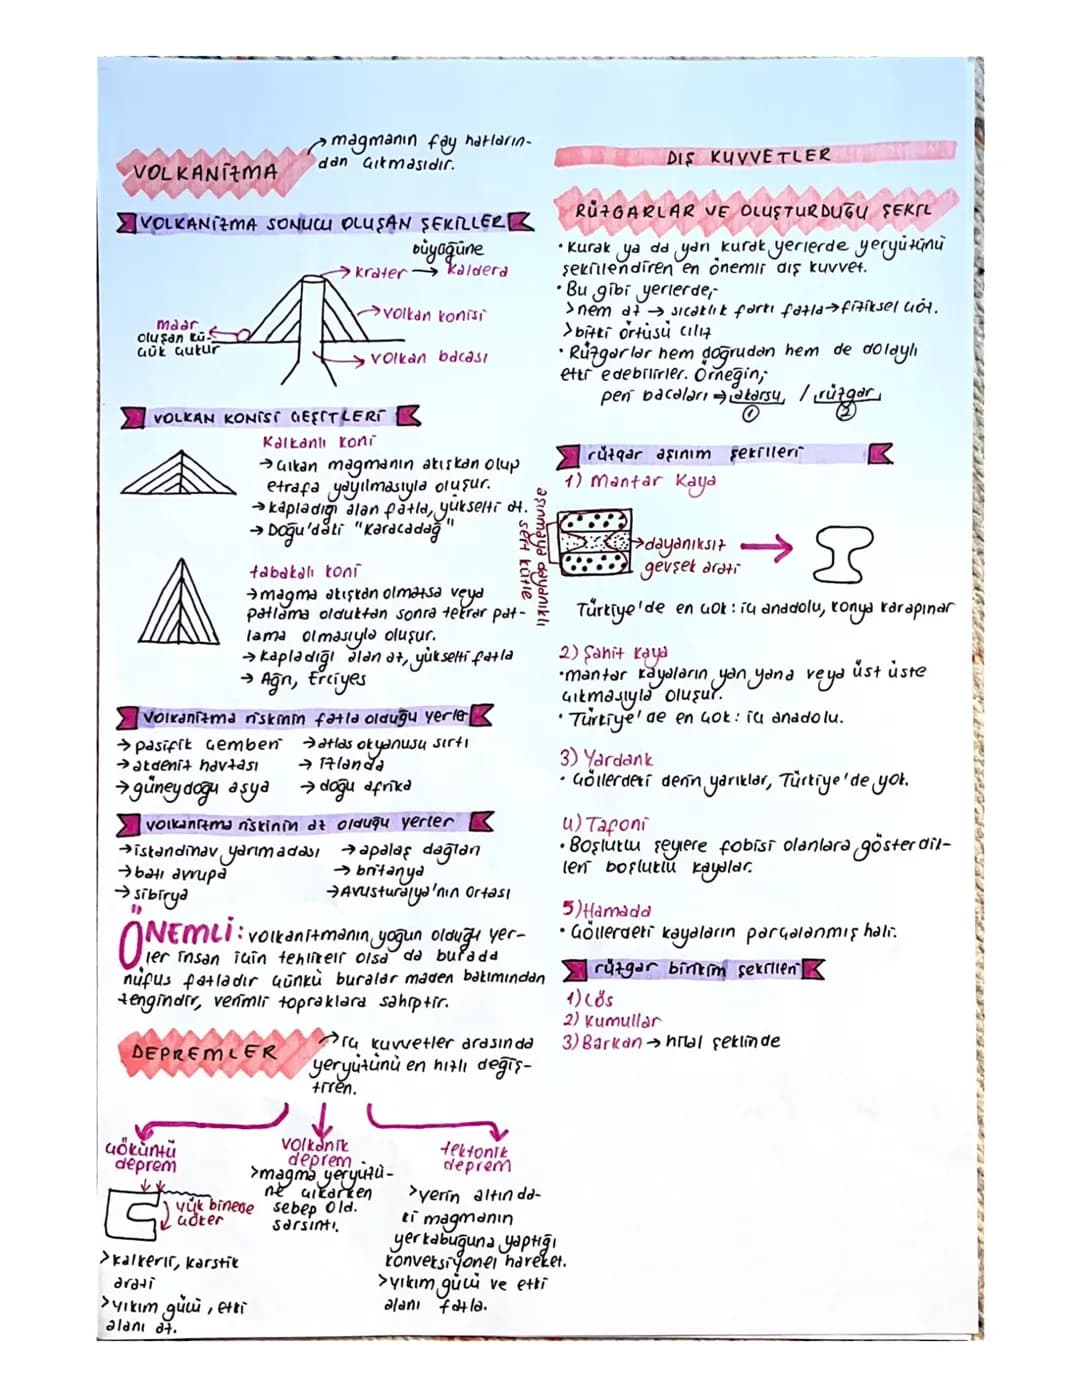 VOLKANİZMA
→ magmanın fay hatların-
dan çıkmasıdır.
VOLKANİZMA SONUCU OLUŞAN ŞEKİLLER
büyüğüne
krater → kaldera
volkan konisi
maar
oluşan kü-
çük çukur
volkan bacası
VOLKAN KONİSİ ÇEŞİTLERİ
Kalkanlı koni
→ çıkan magmanın akışkan olup
etrafa yayılmasıyla oluşur.
→ kapladığı alan fazla, yükselti az.
→ Doğu'daki "Karacadağ"
tabakalı koni
→ magma akışkan olmazsa veya
patlama olduktan sonra tekrar pat-
lama olmasıyla oluşur.
→ kapladığı alan az, yükselti fazla
→ Ağrı, Erciyes
Volkanizma riskinin fazla olduğu yerler
→ pasifik çemberi → atlas okyanusu sırtı
→ akdeniz havzası → İzlanda
→ güneydoğu asya → doğu afrika
volkanizma riskinin az olduğu yerler
→ iskandinav yarımadası → apalaş dağları
→ batı avrupa → britanya
→ sibirya → Avusturalya'nın Ortası
ÖNEMLİ: volkanizmanın yoğun olduğu yer-
ler insan için tehlikeli olsa da burada
nüfus fazladır çünkü buralar maden bakımından
zengindir, verimli topraklara sahiptir.
DEPREMLER
→ iç kuvvetler arasında
yeryüzünü en hızlı değiş-
tiren.
çöküntü
deprem
yük binene
çöker
> kalkerli, karstik
arazi
> yıkım gücü, etki
alanı az.
volkanik
deprem
> magma yeryüzü-
ne çıkarken
sebep old.
sarsıntı.
tektonik
deprem
> yerin altında-
ki magmanın
yerkabuğuna yaptığı
konveksiyonel hareket.
> yıkım gücü ve etki
alanı fazla.
DIŞ KUVVETLER
RÜZGARLAR VE OLUŞTURDUĞU ŞEKİL
• Kurak ya da yarı kurak yerlerde yeryüzünü
şekillendiren en önemli dış kuvvet.
• Bu gibi yerlerde;
> nem az → sıcaklık farkı fazla → fiziksel çöz.
> bitki örtüsü cılız
• Rüzgarlar hem doğrudan hem de dolaylı
etki edebilirler. Örneğin;
peri bacaları ⇒ akarsu / rüzgar
1 2
rüzgar aşınım şekilleri
1) Mantar Kaya
aşınmaya dayanıklı
sert kütle
→ dayanıksız
gevşek arazi
Türkiye'de en çok: iç anadolu, konya karapınar
2) Şahit Kaya
• mantar kayaların yan yana veya üst üste
çıkmasıyla oluşur.
• Türkiye'de en çok: iç anadolu.
3) Yardank
• Çöllerdeki derin yarıklar, Türkiye'de yok.
4) Tafoni
• Boşluklu şeylere fobisi olanlara gösterdik-
leri boşluklu kayalar.
5) Hamada
• Çöllerdeki kayaların parçalanmış hali.
rüzgar birikim şekilleri
1) Lös
2) Kumullar
3) Barkan → hilal şeklinde